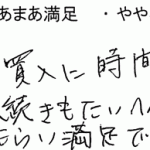 あまあ満足 ・やや
買入に時間
続きもたいへ
らい満足で